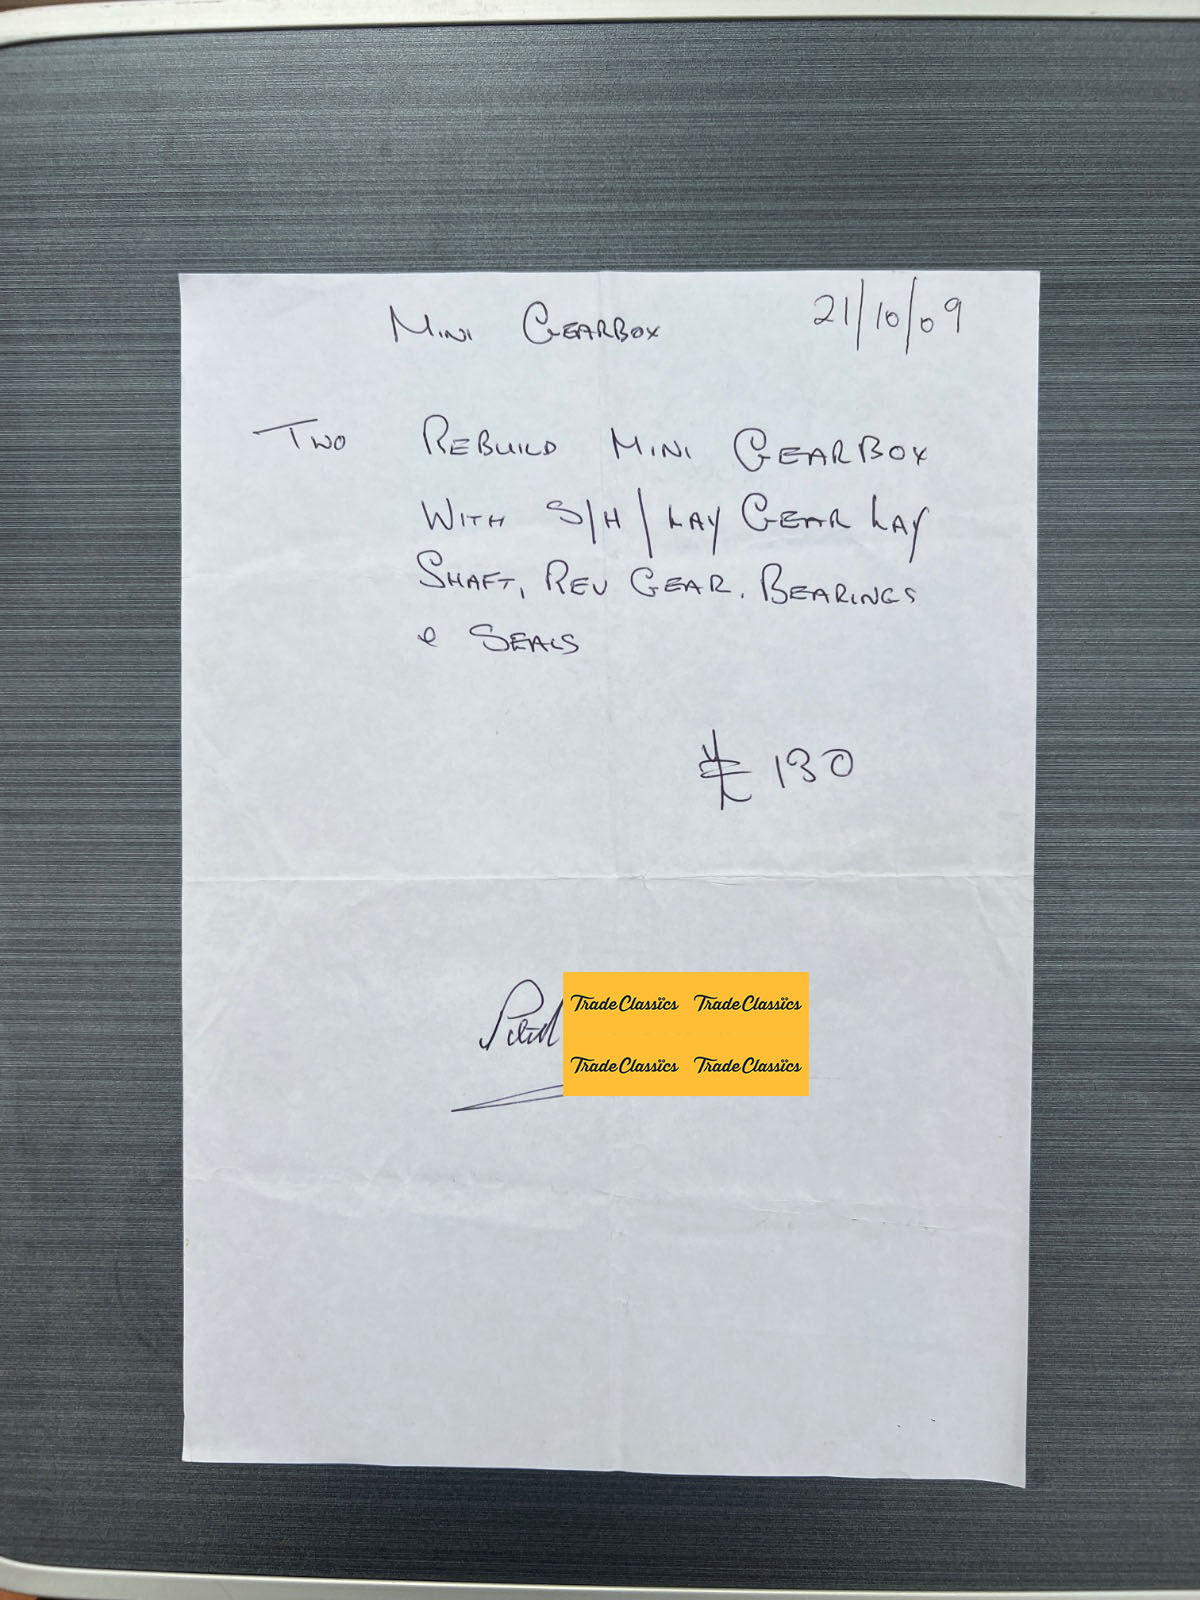 Mini Gearbox 21/10/09
Two Rebuild Mini Gearbox
With S/H / Lay Gear Lay
Shaft, Rev Gear. Bearings
& Seals
£ 130
TradeClassics TradeClassics
TradeClassics TradeClassics